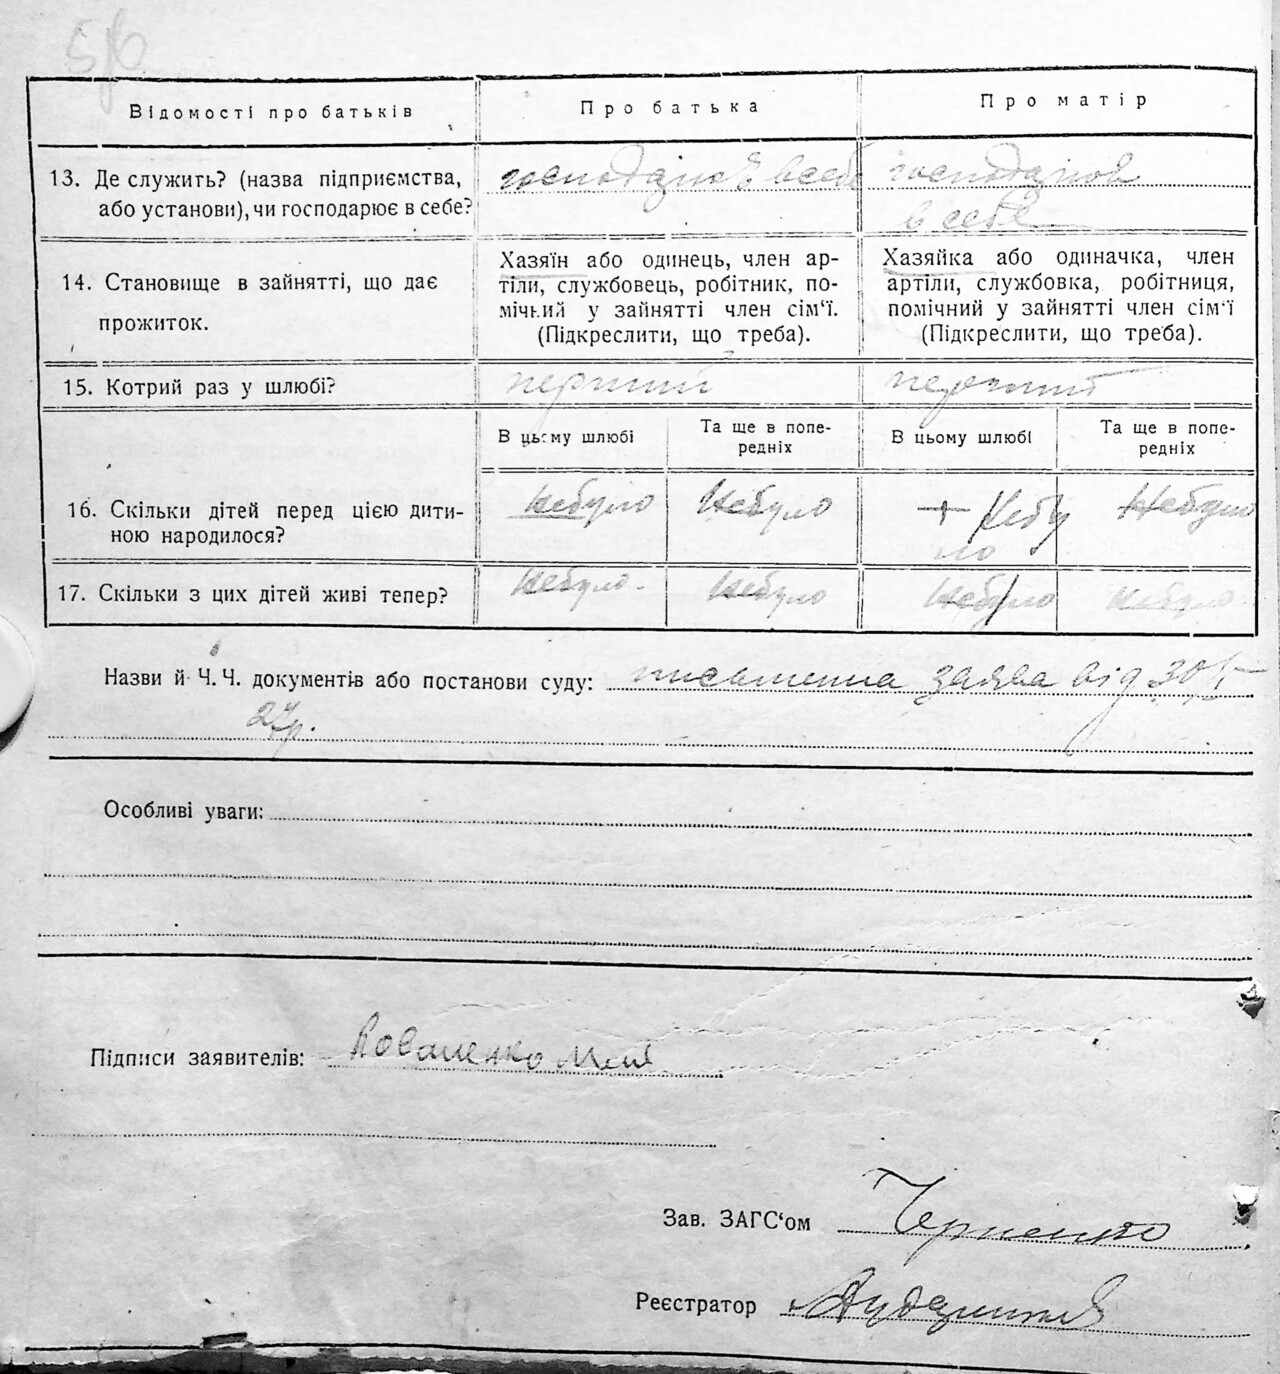 Відомості про батьків
Про батька
Про матір
13. Де служить? (назва підприємства,
або установи), чи господарює в себе?
в себе
в себе
14. Становище в зайнятті, що дає
прожиток.
Хазяїн або одинець, член ар-
тіли, службовець, робітник, по-
мічний у зайнятті член сім‘ї.
(Підкреслити, що треба).
Хазяйка або одиначка, член
артіли, службовка, робітниця,
помічний у зайнятті член сім‘ї
(Підкреслити, що треба).
15. Котрий раз у шлюбі?
перший
перший
В цьому шлюбі
Та ще в попе-
редніх
В цьому шлюбі
Та ще в попе-
редніх
16. Скільки дітей перед цією дити-
ною народилося?
Небуло
Небуло
Небу
ло
Небуло
17. Скільки з цих дітей живі тепер?
Небуло
Небуло
Небуло
Небуло
Назви й Ч. Ч. документів або постанови суду: письменна заява від 30/
27р.
Особливі уваги:
Підписи заявителів: Коваленко
Зав. ЗАГС‘ом Черненко
Реєстратор